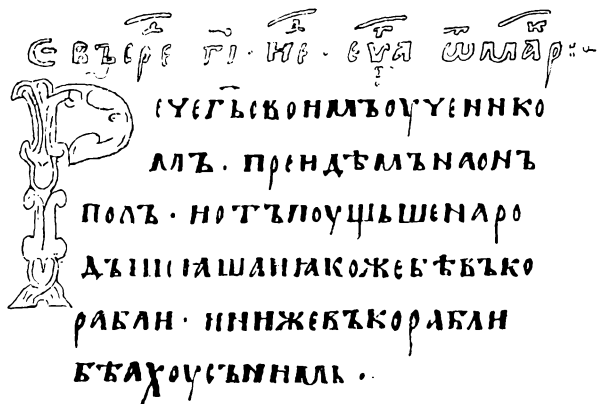 С въ среⷣ г҃і· неⷣ· еѵⷢа ѿ марⷦ:~
Речег҃ьсвоимъоученико
мъ· преидѣмънаонъ
полъ· иотъпоущьшенаро
дꙑпоꙗшаиꙗкожебѣвъко
рабли· ииниижевъкорабли
бѣахоусънимь·